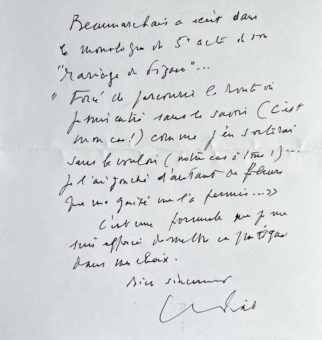 Beaumarchais a écrit dans
le monologue du 5e acte de son
"Mariage de Figaro"...
"Forcé de parcourir la route où
je suis entré sans le savoir (c'est
mon cas !) comme j'en sortirai
sans le vouloir (notre cas à tous !)...
je l'ai jonchée d'autant de fleurs
que ma gaieté me l'a permis..."
C'est une formule que je me
suis efforcé de mettre en
dans mes choix.
Bien sincèrement